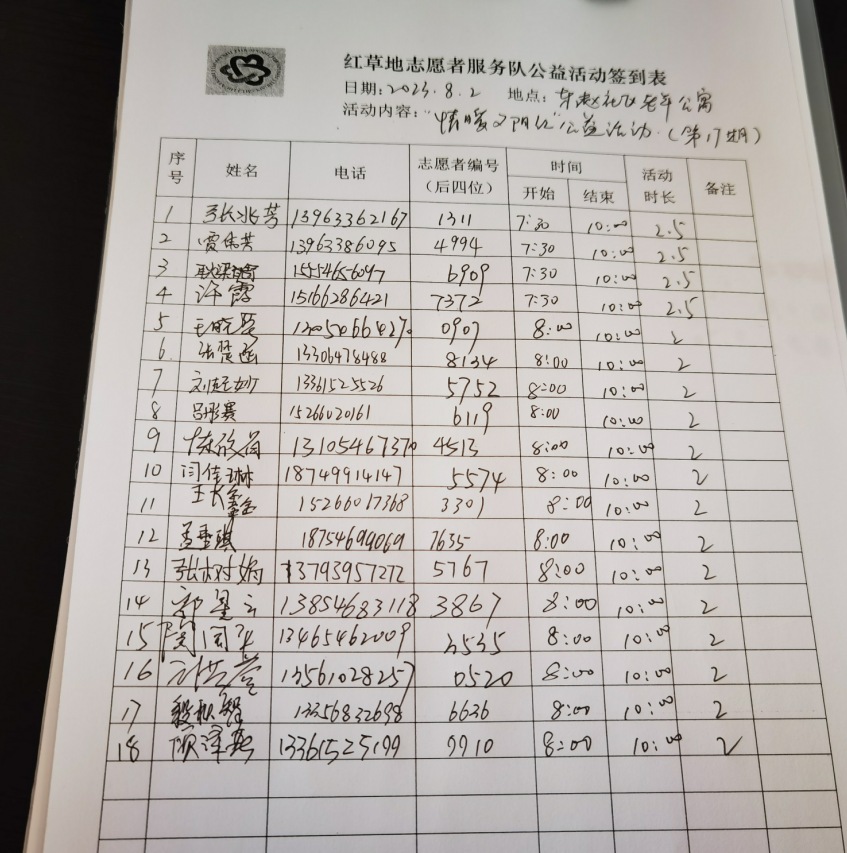 红草地志愿者服务队公益活动签到表
日期:2023.8.2 地点:东赵社区老年公寓
活动内容:"情暖夕阳红"公益活动.(第17期)
序号 姓名 电话 志愿者编号(后四位) 时间 开始 结束 活动时长 备注
1 张兆芳 13963362167 1311 7:30 10:00 2.5
2 贾伟芸 13963386095 4994 7:30 10:00 2.5
3 15554656097 6909 7:30 10:00 2.5
4 许霞 15166286421 7372 7:30 10:00 2.5
5 0907 8:00 10:00 2
6 张楚函 13306478488 8134 8:00 10:00 2
7 13361525526 5752 8:00 10:00 2
8 吕彤赛 15266020161 6119 8:00 10:00 2
9 13105467370 4513 8:00 10:00 2
10 闫佳琳 18749914147 5574 8:00 10:00 2
11 王长鑫 15266017368 3301 8:00 10:00 2
12 孟垂琪 18754699069 7635 8:00 10:00 2
13 张树娟 13793957272 5767 8:00 10:00 2
14 郭星云 13854683118 3867 8:00 10:00 2
15 13465462009 3535 8:00 10:00 2
16 13561028257 0520 8:00 10:00 2
17 13356832698 6636 8:00 10:00 2
18 13361525199 9910 8:00 10:00 2